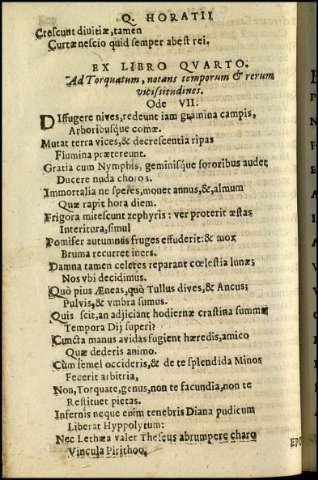 Q. HORATII
Crescunt divitiæ, tamen
Curtæ nescio quid semper abest rei.
EX LIBRO QVARTO.
Ad Torquatum, notans temporum & rerum
vicissitudines.
Ode VII.
DIffugere nives, redeunt iam gramina campis,
Arboribusque comæ.
Mutat terra vices, & decrescentia ripas
Flumina prætereunt.
Gratia cum Nymphis, geminisque sororibus audet
Ducere nuda choros.
Immortalia ne speres, monet annus, &, almum
Quæ rapit hora diem.
Frigora mitescunt zephyris : ver proterit æstas
Interitura, simul
Pomifer autumnus fruges effuderit: & mox
Bruma recurret iners.
Damna tamen celeres reparant cœlestia lunæ;
Nos vbi decidimus.
Quò pius Æneas, quò Tullus dives, & Ancus;
Pulvis, & vmbra sumus.
Quis scit, an adjiciant hodiernæ crastina summæ
Tempora Dij superi?
Cuncta manus avidas fugient hæredis, amico
Quæ dederis animo.
Cùm semel occideris, & de te splendida Minos
Fecerit arbitria,
Non, Torquate, genus, non te facundia, non te
Restituet pietas.
Infernis neque enim tenebris Diana pudicum
Liberat Hyppolytum:
Nec Lethæa valet Theseus abrumpere charo
Vincula Pirithoo.